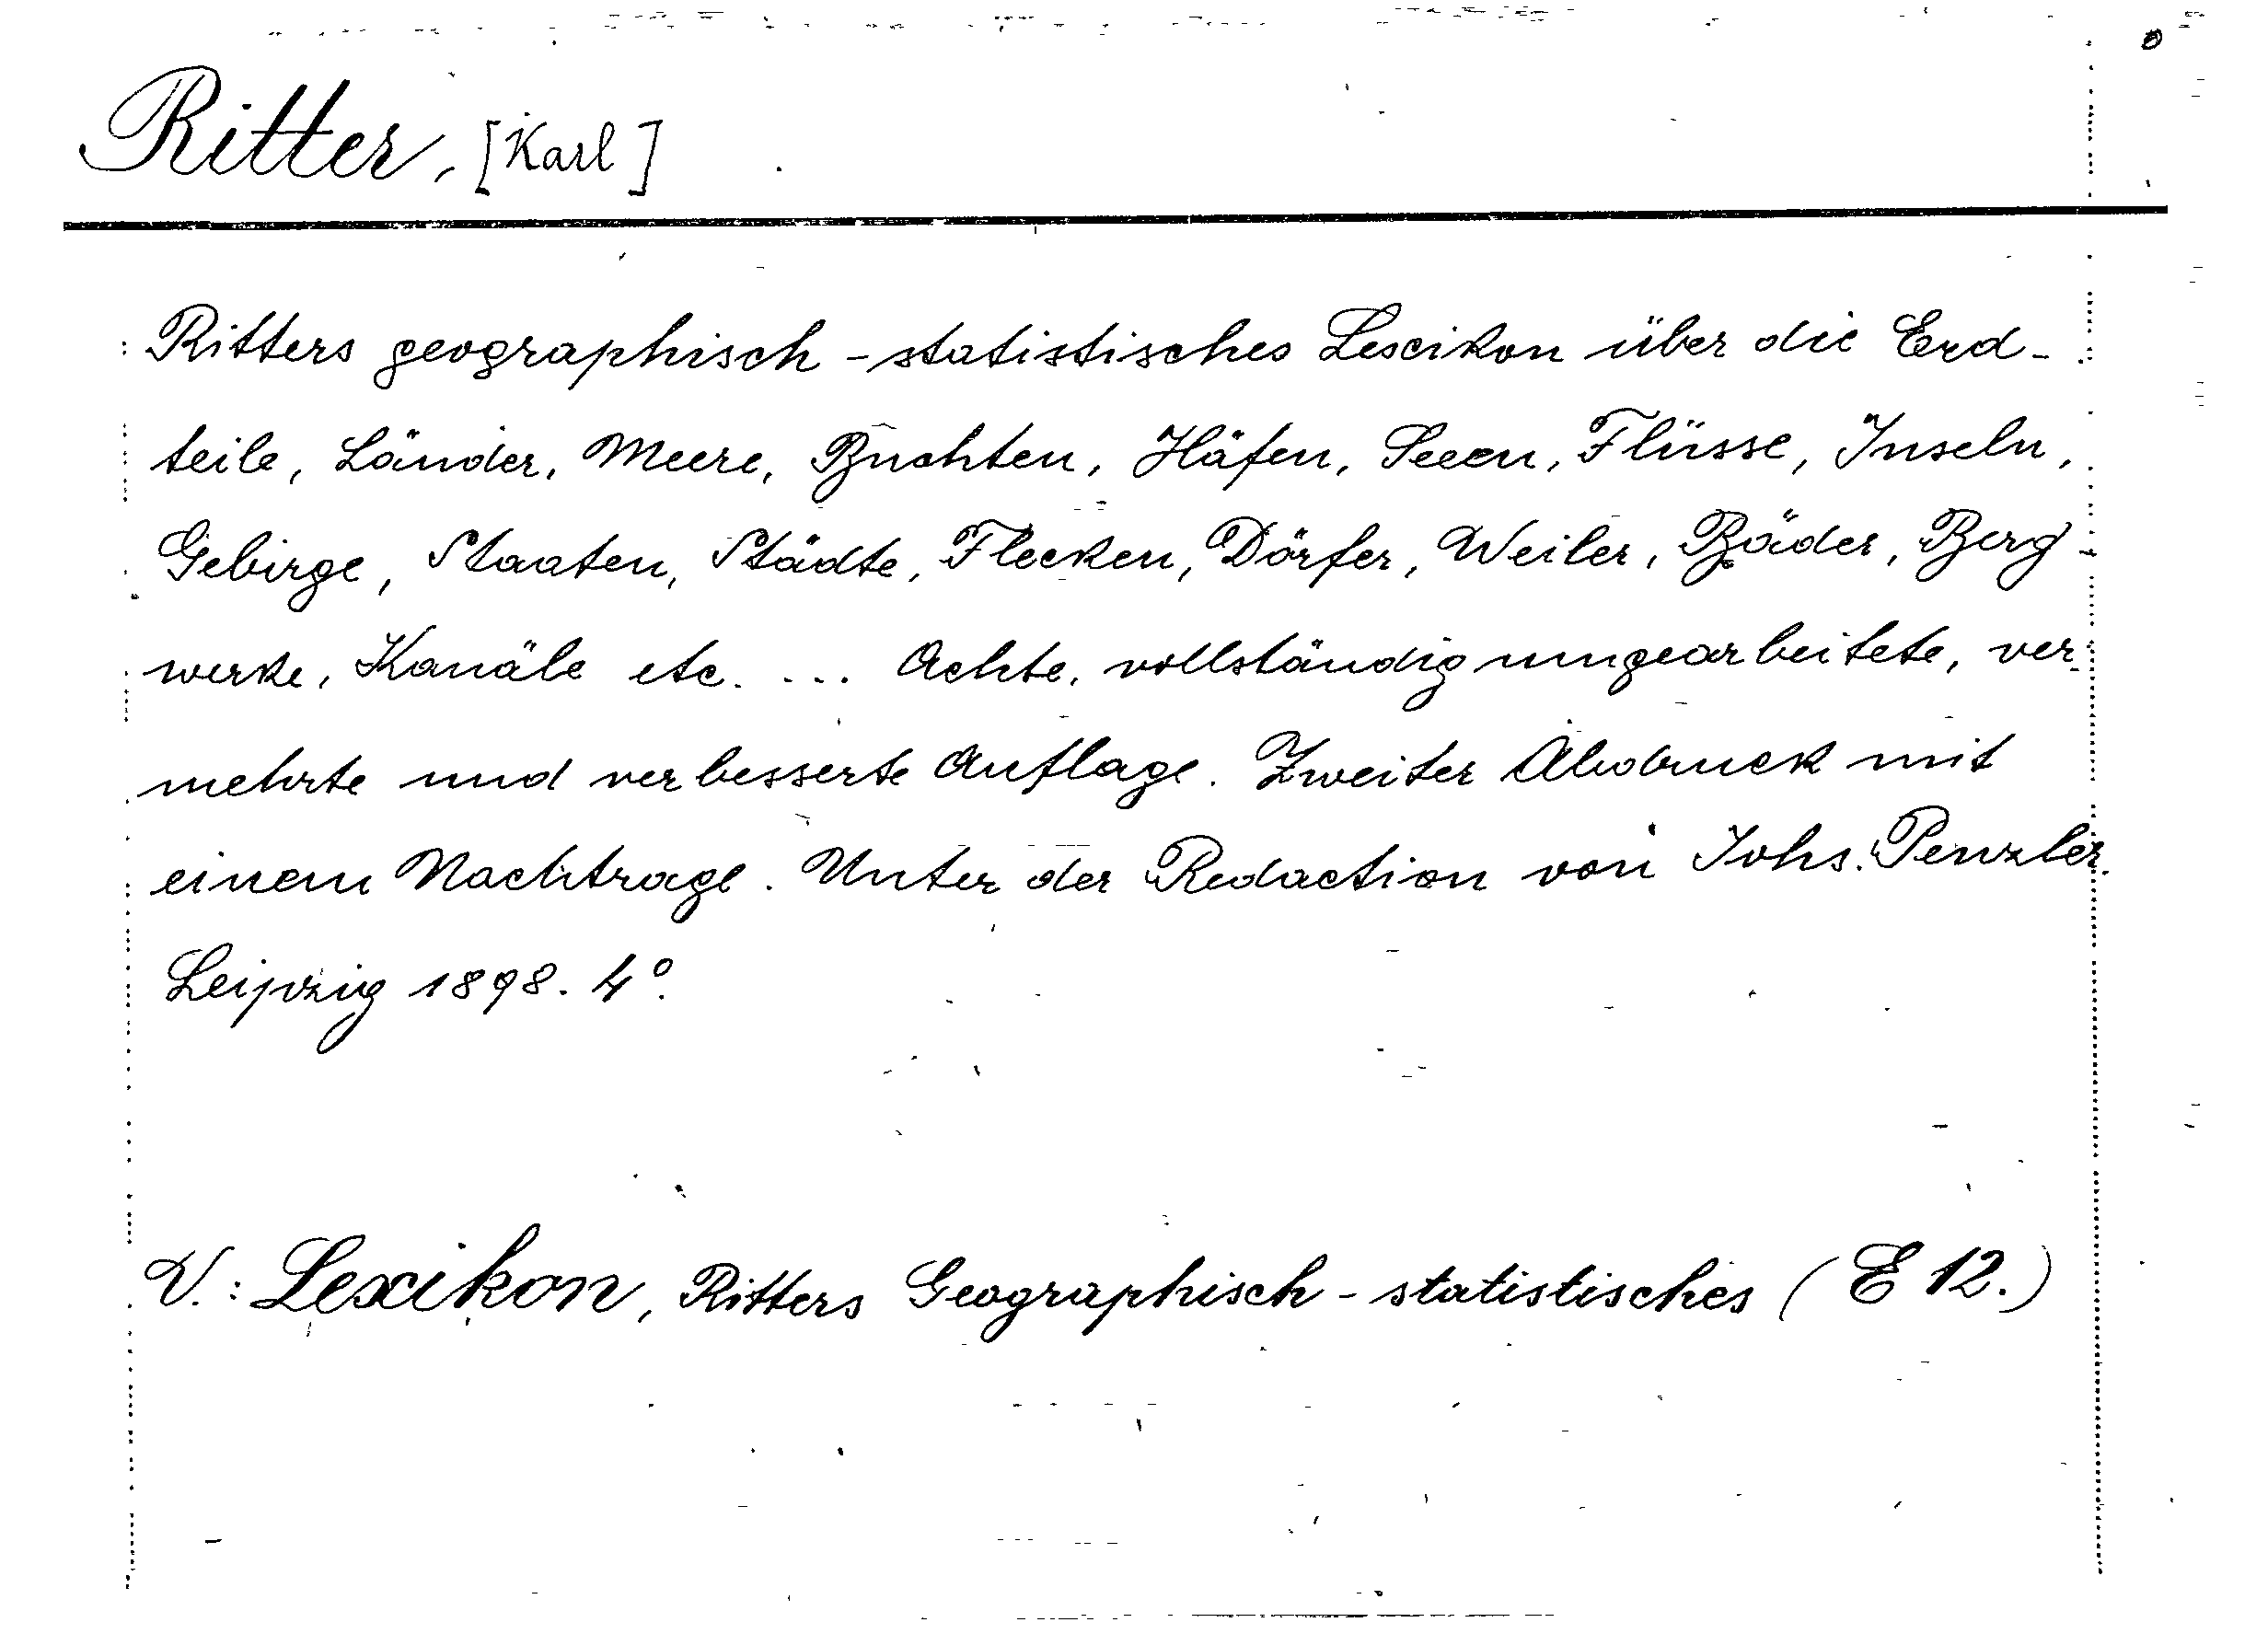 Ritter, [Karl]
Ritters geographisch-statistisches Lexikon über die Erd-
teile, Länder, Meere, Buchten, Häfen, Seeen, Flüsse, Inseln,
Gebirge, Staaten, Städte, Flecken, Dörfer, Weiler, Bäder, Berg-
werke, Kanäle etc. ... Achte, vollständig umgearbeitete, ver-
mehrte und verbesserte Auflage. Zweiter Abdruck mit
einem Nachtrage. Unter der Redaction von Johs. Penzler.
Leipzig 1898. 4°.
V.: Lexikon, Ritters Geographisch-statistisches (E 12.)